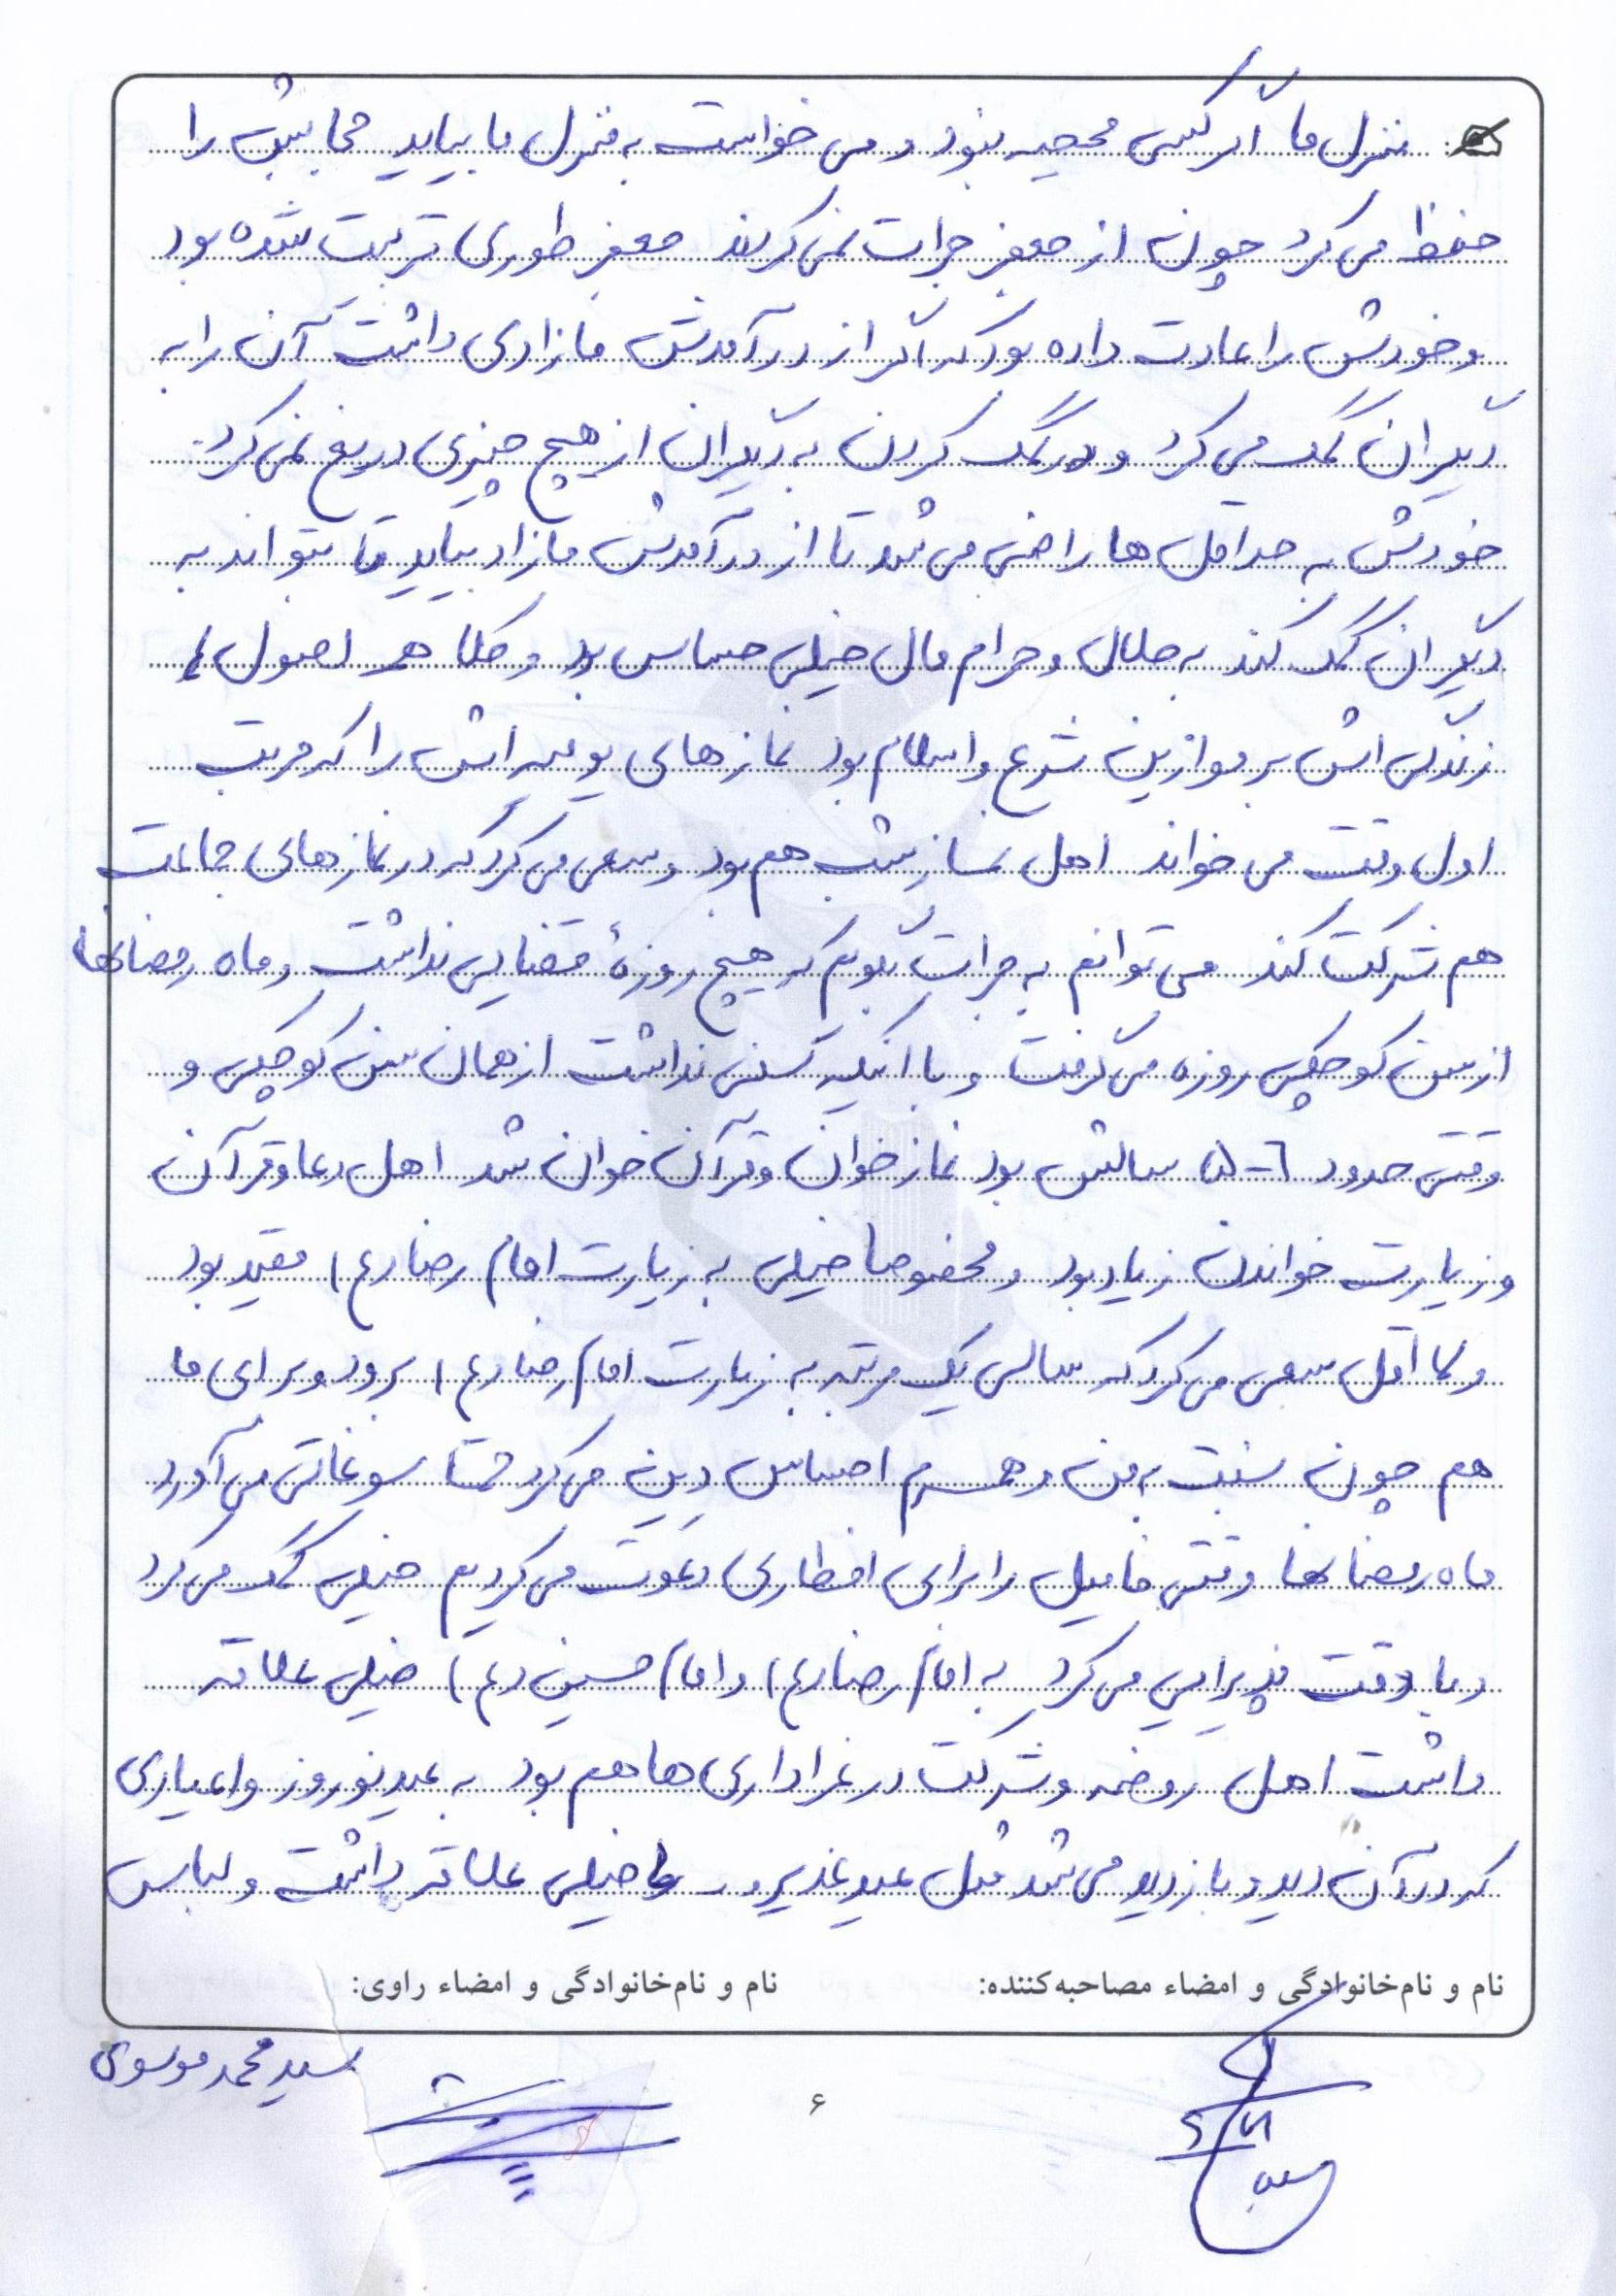 منزل ما اگر کسی محجبه نبود و می خواست به منزل ما بیاید حجابش را
حفظ می کرد چون از جعفر جرات نمی کردند جعفر طوری تربیت شده بود
و خودش را عادت داده بود که اگر از درآمدش مازادی داشت آن را به
دیگران کمک می کرد و در کمک کردن به دیگران از هیچ چیزی دریغ نمی کرد.
خودش به حداقل ها راضی می شد تا از درآمدش مازاد بیاید تا بتواند به
دیگران کمک کند به حلال و حرام مال خیلی حساس بود و کلا همه اصول
زندگی اش بر موازین شرع و اسلام بود نمازهای یومیه اش را که مرتب
اول وقت می خواند اهل نماز شب هم بود و سعی می کرد که در نمازهای جماعت
هم شرکت کند می توانم به جرات بگویم که هیچ روزهٔ قضایی نداشت و ماه رمضانها
از سن کوچکی روزه می گرفت و با اینکه سنی نداشت از همان سن کوچکی و
وقتی حدود ۶-۵ سالش بود نمازخوان و قرآن خوان شد اهل دعا و قرآن
و زیارت خواندن زیاد بود و مخصوصا خیلی به زیارت امام رضا (ع) مقید بود
و لااقل سعی می کرد که سالی یک مرتبه به زیارت امام رضا (ع) برود و برای ما
هم چون نسبت به من و همسرم احساس دین می کرد حتما سوغاتی می آورد
ماه رمضانها وقتی فامیل را برای افطاری دعوت می کردیم خیلی کمک می کرد
و با دقت پذیرایی می کرد به امام رضا (ع) و امام حسین (ع) خیلی علاقه
داشت اهل روضه و شرکت در عزاداری ها هم بود به عید نوروز و اعیادی
که در آن دید و بازدید می شد مثل عید غدیر و... خیلی علاقه داشت و لباس
نام و نام‌خانوادگی و امضاء مصاحبه‌کننده: نام و نام‌خانوادگی و امضاء راوی:
سید محمد موسوی
۶